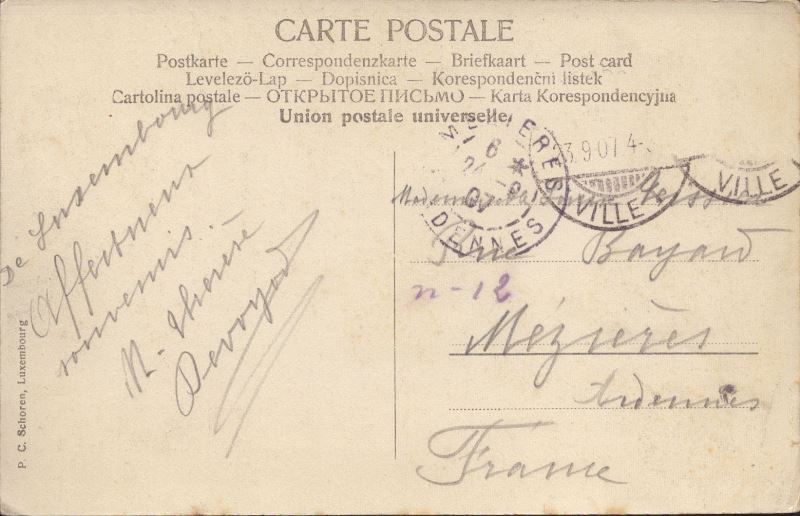 CARTE POSTALE
Postkarte — Correspondenzkarte — Briefkaart — Post card
Levelezö-Lap — Dopisnica — Korespondenční listek
Cartolina postale — ОТКРЫТОЕ ПИСЬМО — Karta Korespondencyjna
Union postale universelle.
De Luxembourg
Affectueux
souvenirs.
M. Therese
P. C. Schoren, Luxembourg
MEZIERES
6
* 
9
07
DENNES
3.9.07 4-
VILLE
VILLE
Rue Bayard
n-12
Mézières
Ardennes
France